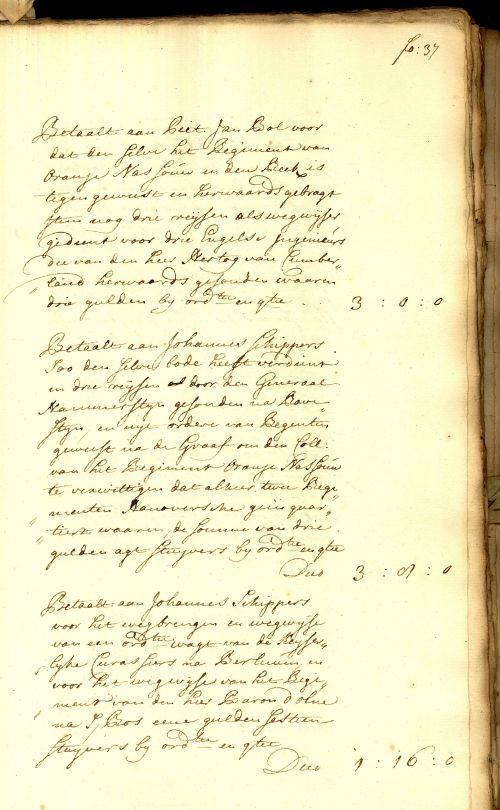 fo: 37
Betaalt aan Piet Jan Bol voor
dat den selve het Regiment van
Oranje Nassouw in den Beek is
tegen geweest en herwaards gebragt
Item nog drie reijsen als wegwijser
gedient voor drie Engelse Ingenieurs
die van den Heer Hertog van Cumber„
„land herwaards gesonden waaren
drie gulden by ord:tie en q:tie . 3 : 0 : 0
Betaalt aan Johannes Schippers
Soo den selve bode heeft verdient
in drie reijsen als door den Generaal
Hammerstyn gesonden na Bave„
„Styn, en uijt ordere van Regenten
geweest na de Graaf om den Coll:
van het Regiment Oranje Nassouw
te verwittigen dat alhier twee Regi„
„menten Hanoversche geinquar„
„tiert waaren de somme van drie
gulden agt stuyvers by ord:tie en q:tie
Dus 3 : 8 : 0
Betaalt aan Johannes Schippers
voor het wegbrengen en wegwijse
van een ord:tie wagt van de Keyser„
„lyke Curassiers na Berlicum, en
voor het wegwyse van het Regi„
„ment van den heer Baron
na eene gulden sestien
Stuyvers by ord:tie en q:tie
Dus 1 : 16 : 0